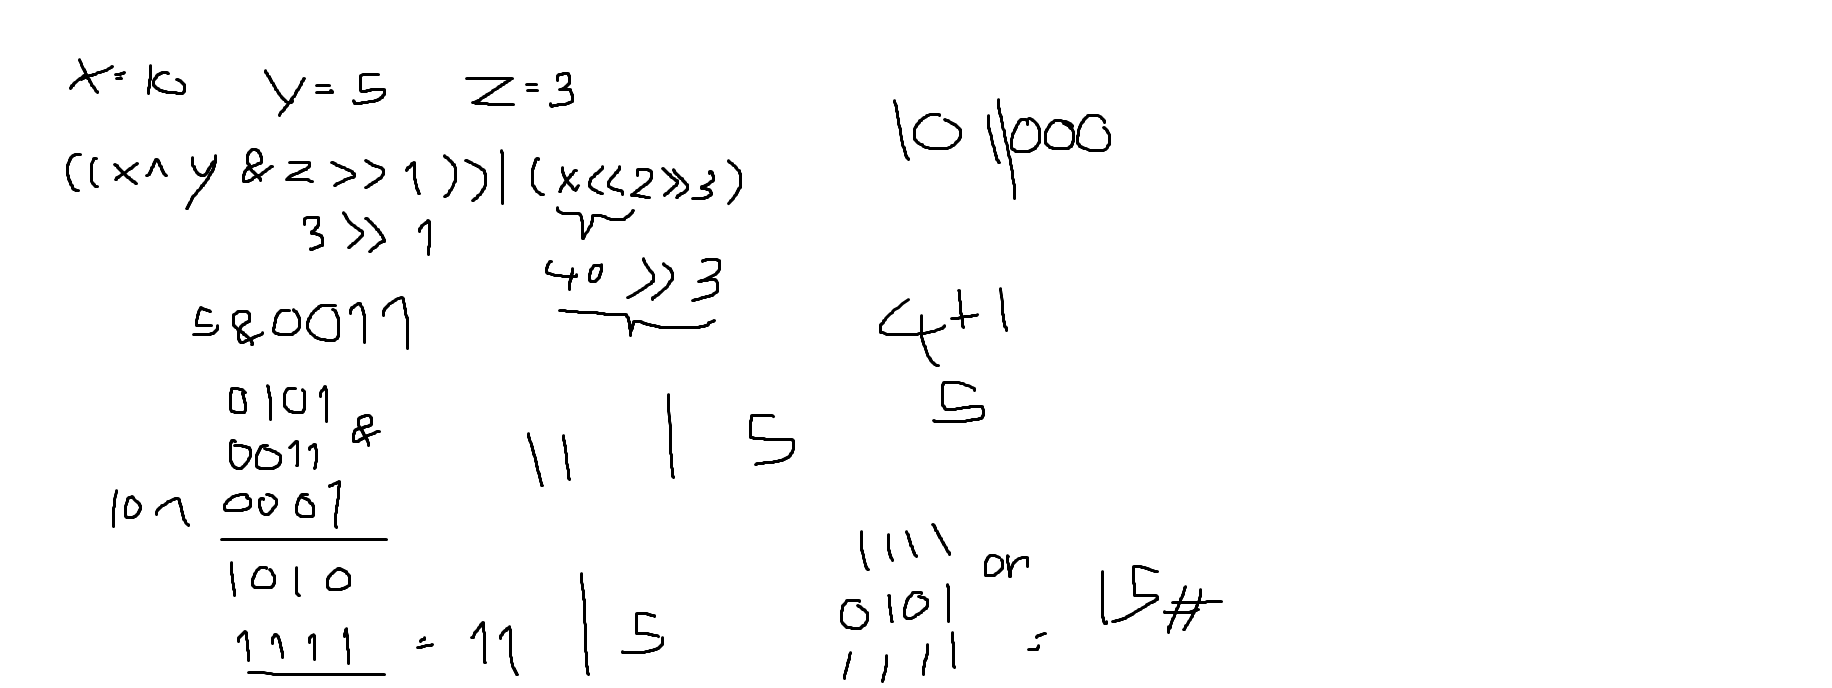 x=10 y=5 z=3
((x^y & z>>1))|(x<<2>>3)
3>>1
40>>3
5&0011
0101
0011 &
10^ 0001
1010
1111 = 11 | 5
101000
4+1
5
11 | 5
1111
0101 or
1111 = 15#